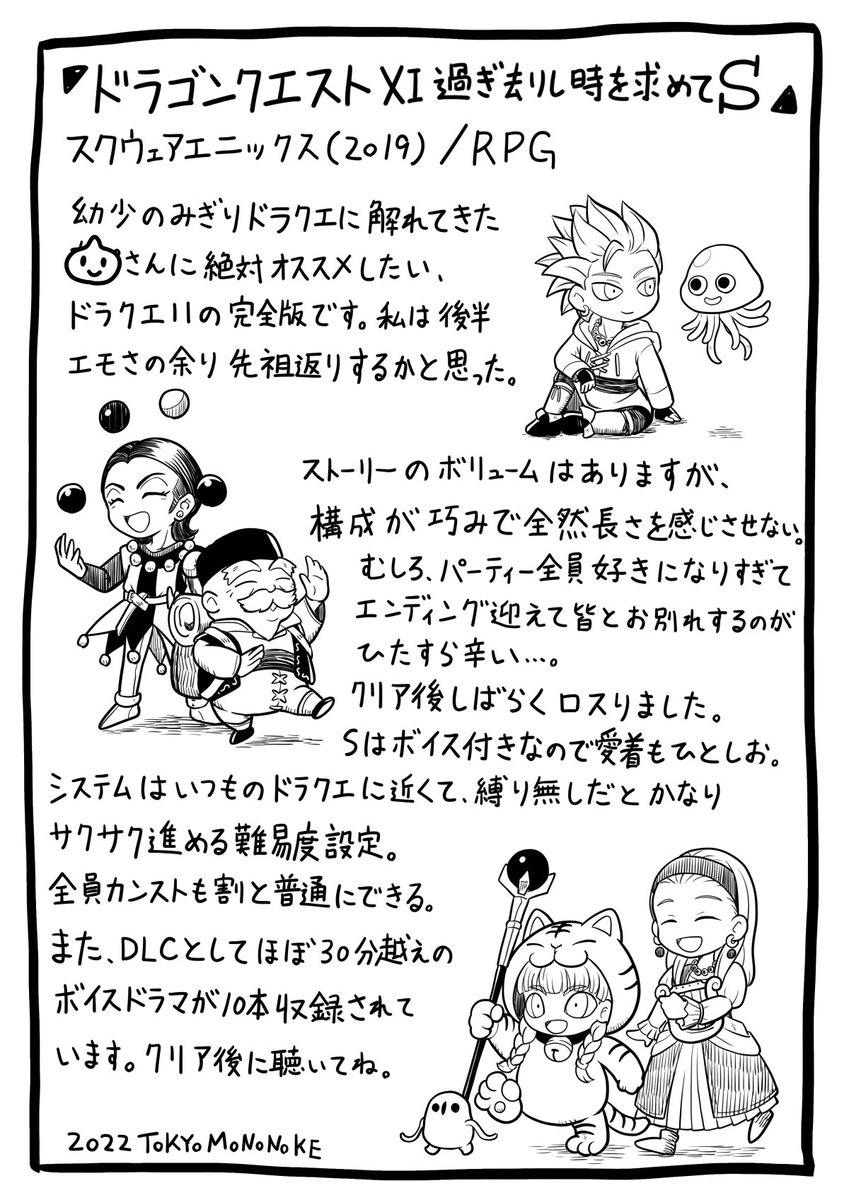 『ドラゴンクエストXI 過ぎ去りし時を求めてS』
スクウェアエニックス(2019)/RPG
幼少のみぎりドラクエに解れてきた
さんに絶対オススメしたい、
ドラクエ11の完全版です。私は後半
エモさの余り先祖返りするかと思った。
ストーリーのボリュームはありますが、
構成が巧みで全然長さを感じさせない。
むしろ、パーティー全員好きになりすぎて
エンディング迎えて皆とお別れするのが
ひたすら辛い…。
クリア後しばらくロスりました。
Sはボイス付きなので愛着もひとしお。
システムはいつものドラクエに近くて、縛り無しだとかなり
サクサク進める難易度設定。
全員カンストも割と普通にできる。
また、DLCとしてほぼ30分越えの
ボイスドラマが10本収録されて
います。クリア後に聴いてね。
2022 TOKYO MONONOKE